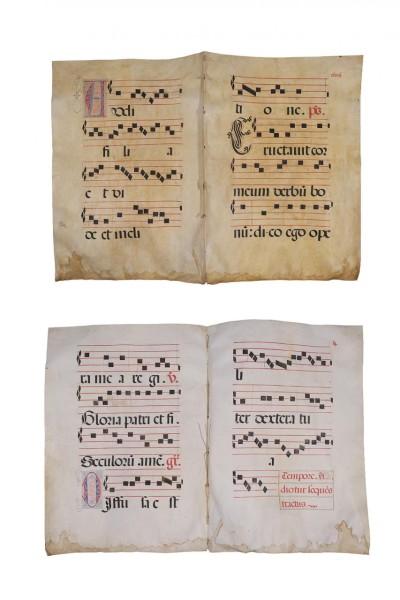 Audi
fi li a
e t vi
de et incli
ti o ne. ps.
Eructauit cor
meum verbū bo
nū: di co ego ope
ra me a re gi. v.
Gloria patri et fi.
Seculorū amē. gr.
Diffu sa e st
li
ter dextera tu
a
Tempore.
dicitur sequēs
tractus